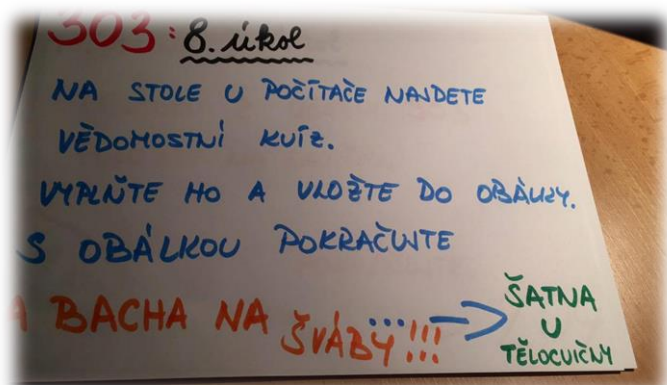 303: 8. úkol
NA STOLE U POČÍTAČE NAJDETE
VĚDOMOSTNÍ KVÍZ.
VYPLŇTE HO A VLOŽTE DO OBÁLKY.
S OBÁLKOU POKRAČUJTE
A BACHA NA ŠVÁBY!!!
ŠATNA
U
TĚLOCVIČNY